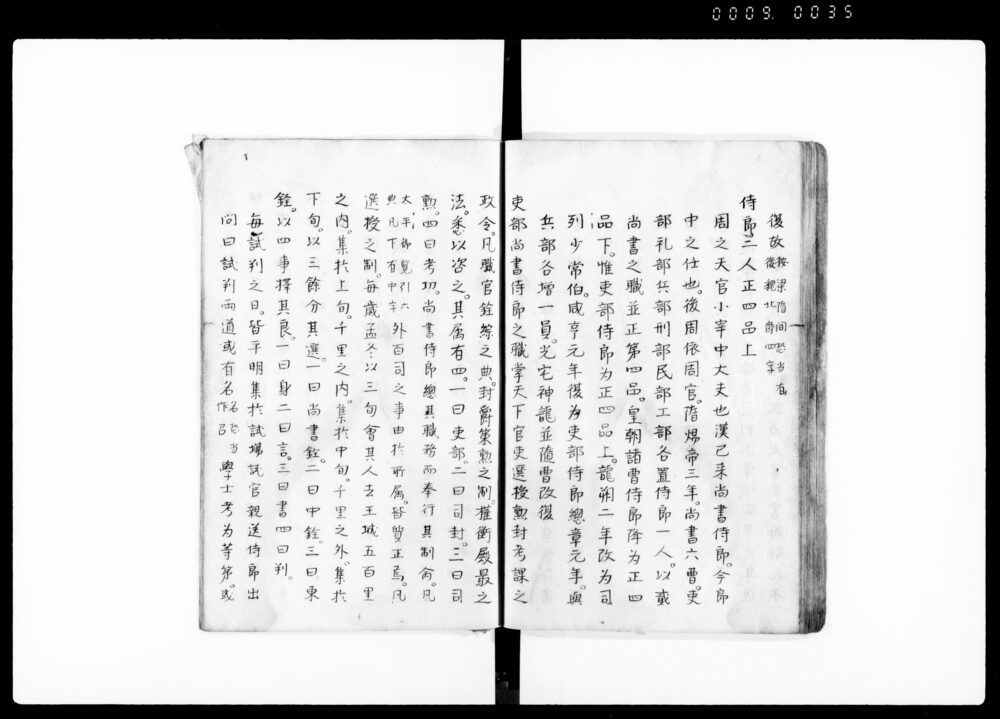 0009. 0035
復故 按梁隋间恐当有後魏北齊四字
侍郎二人正四品上
周之天官小宰中大夫也漢已来尚書侍郎。今郎
中之仕也。後周依周官。隋煬帝三年尚書六曹。吏
部礼部兵部刑部民部工部各置侍郎一人。以貳
尚書之職並正第四品。皇朝諸曹侍郎降为正四
品下。惟吏部侍郎为正四品上。龍朔二年改为司
列少常伯。咸亨元年復为吏部侍郎總章元年。與
兵部各增一員。光宅神龍並隨曹改復
吏部尚書侍郎之職掌天下官吏選授勲封考課之
政令。凡職官銓綜之典。封爵策勲之制。權衡殿最之
法。悉以咨之。其属有四。一曰吏部。二曰司封。三曰司
勲。四曰考功。尚書侍郎總其職務而奉行其制命。凡
太平御覧引六典凡下有中字 外百司之事由於所属。皆質正焉。凡
選授之制。每歳孟冬以三旬會其人去王城五百里
之内。集於上旬。千里之内。集於中旬。千里之外。集於
下旬。以三餘分其選。一曰尚書銓。二曰中銓。三曰東
銓。以四事擇其良。一曰身二曰言。三曰書四曰判。
每試判之日。皆平明集於試場試官親送侍郎出
问曰試判两道或有名 名恐当作召 學士考为等第。或